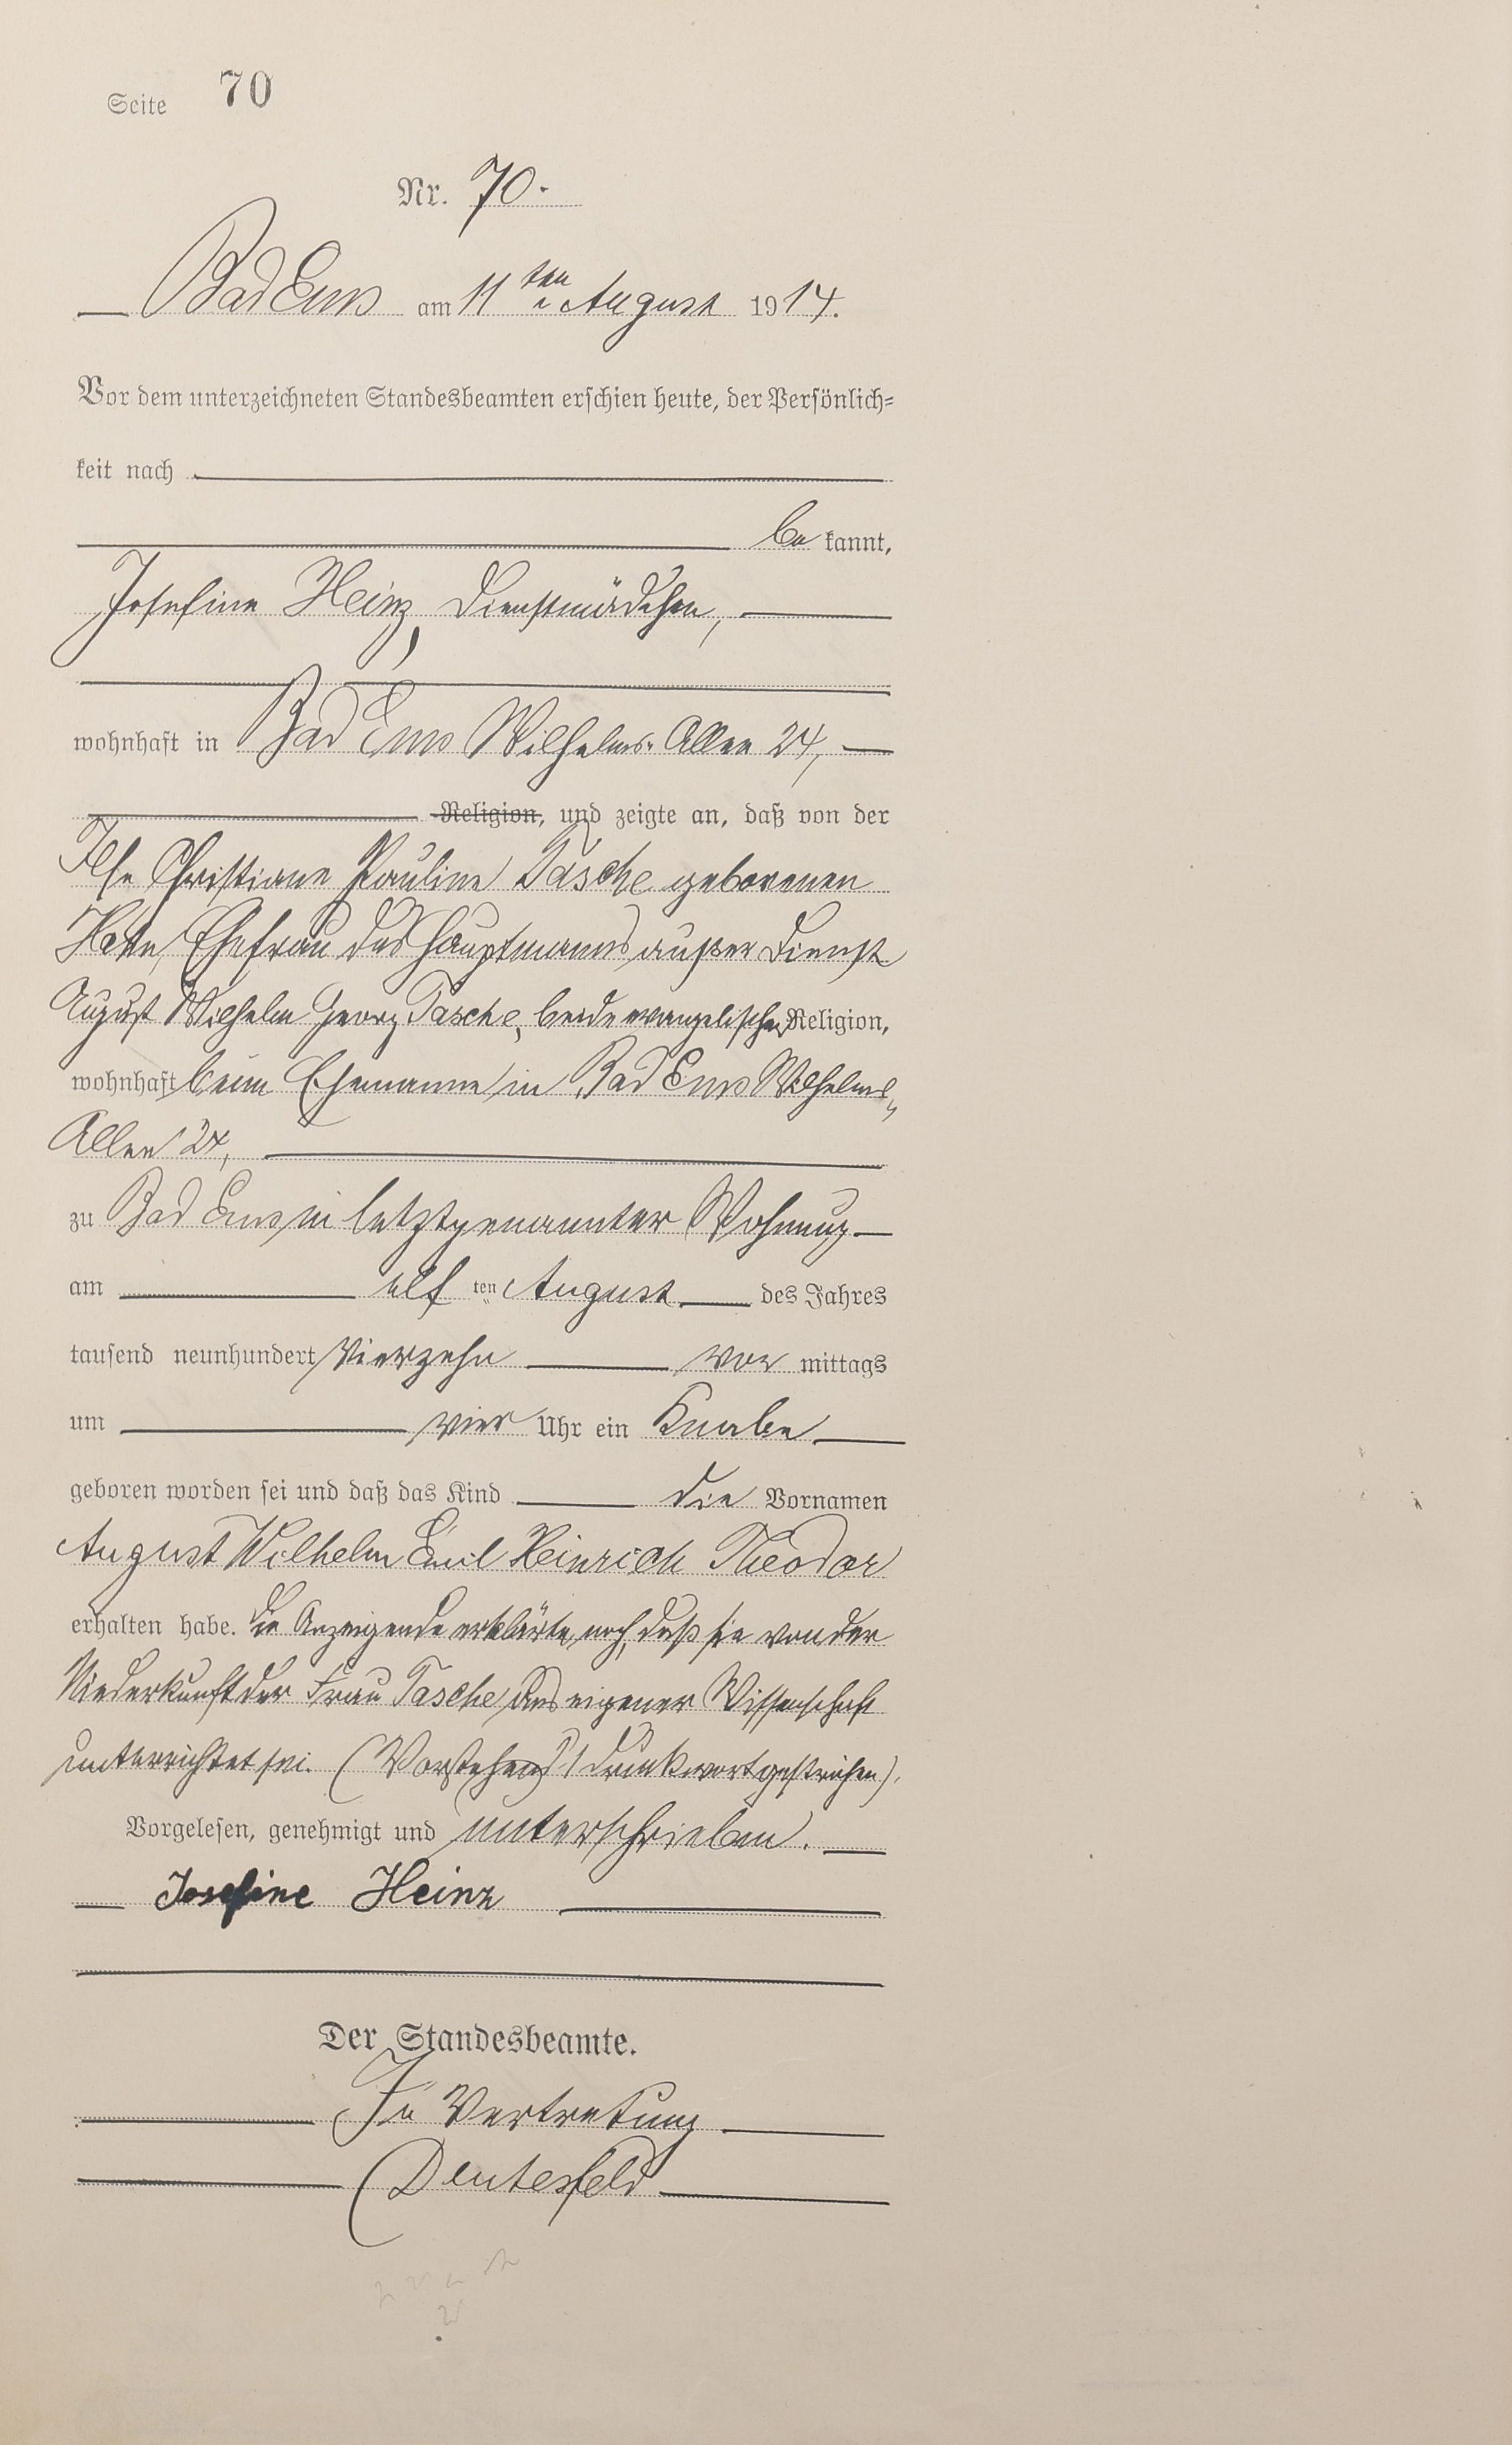 Seite 70
Nr. 70.
Bad Ems am 11ten August 1914.
Vor dem unterzeichneten Standesbeamten erschien heute, der Persönlich-
keit nach
be kannt,
Josefine Heinz, Dienstmädchen,
wohnhaft in Bad Ems Wilhelms-Allee 24,
Religion, und zeigte an, daß von der
Ilse Christiane Pauline Tasche geborenen
Ehefrau des Hauptmanns außer Dienst
August Wilhelm Georg Tasche, beide evangelischer Religion,
wohnhaft beim Ehemanne in Bad Ems Wilhelms-
Allee 24,
zu Bad Ems in letztgenannter Wohnung
am elf ten August des Jahres
tausend neunhundert vierzehn vor mittags
um vier Uhr ein Knabe
geboren worden sei und daß das Kind die Vornamen
August Wilhelm Emil Heinrich Theodor
erhalten habe. Die Anzeigende erklärte noch, daß sie von der
Niederkunft der Frau Tasche aus eigener Wissenschaft
unterrichtet sei. (Vorstehend 1 Druckwort gestrichen).
Vorgelesen, genehmigt und unterschrieben.
Josefine Heinz
Der Standesbeamte.
In Vertretung